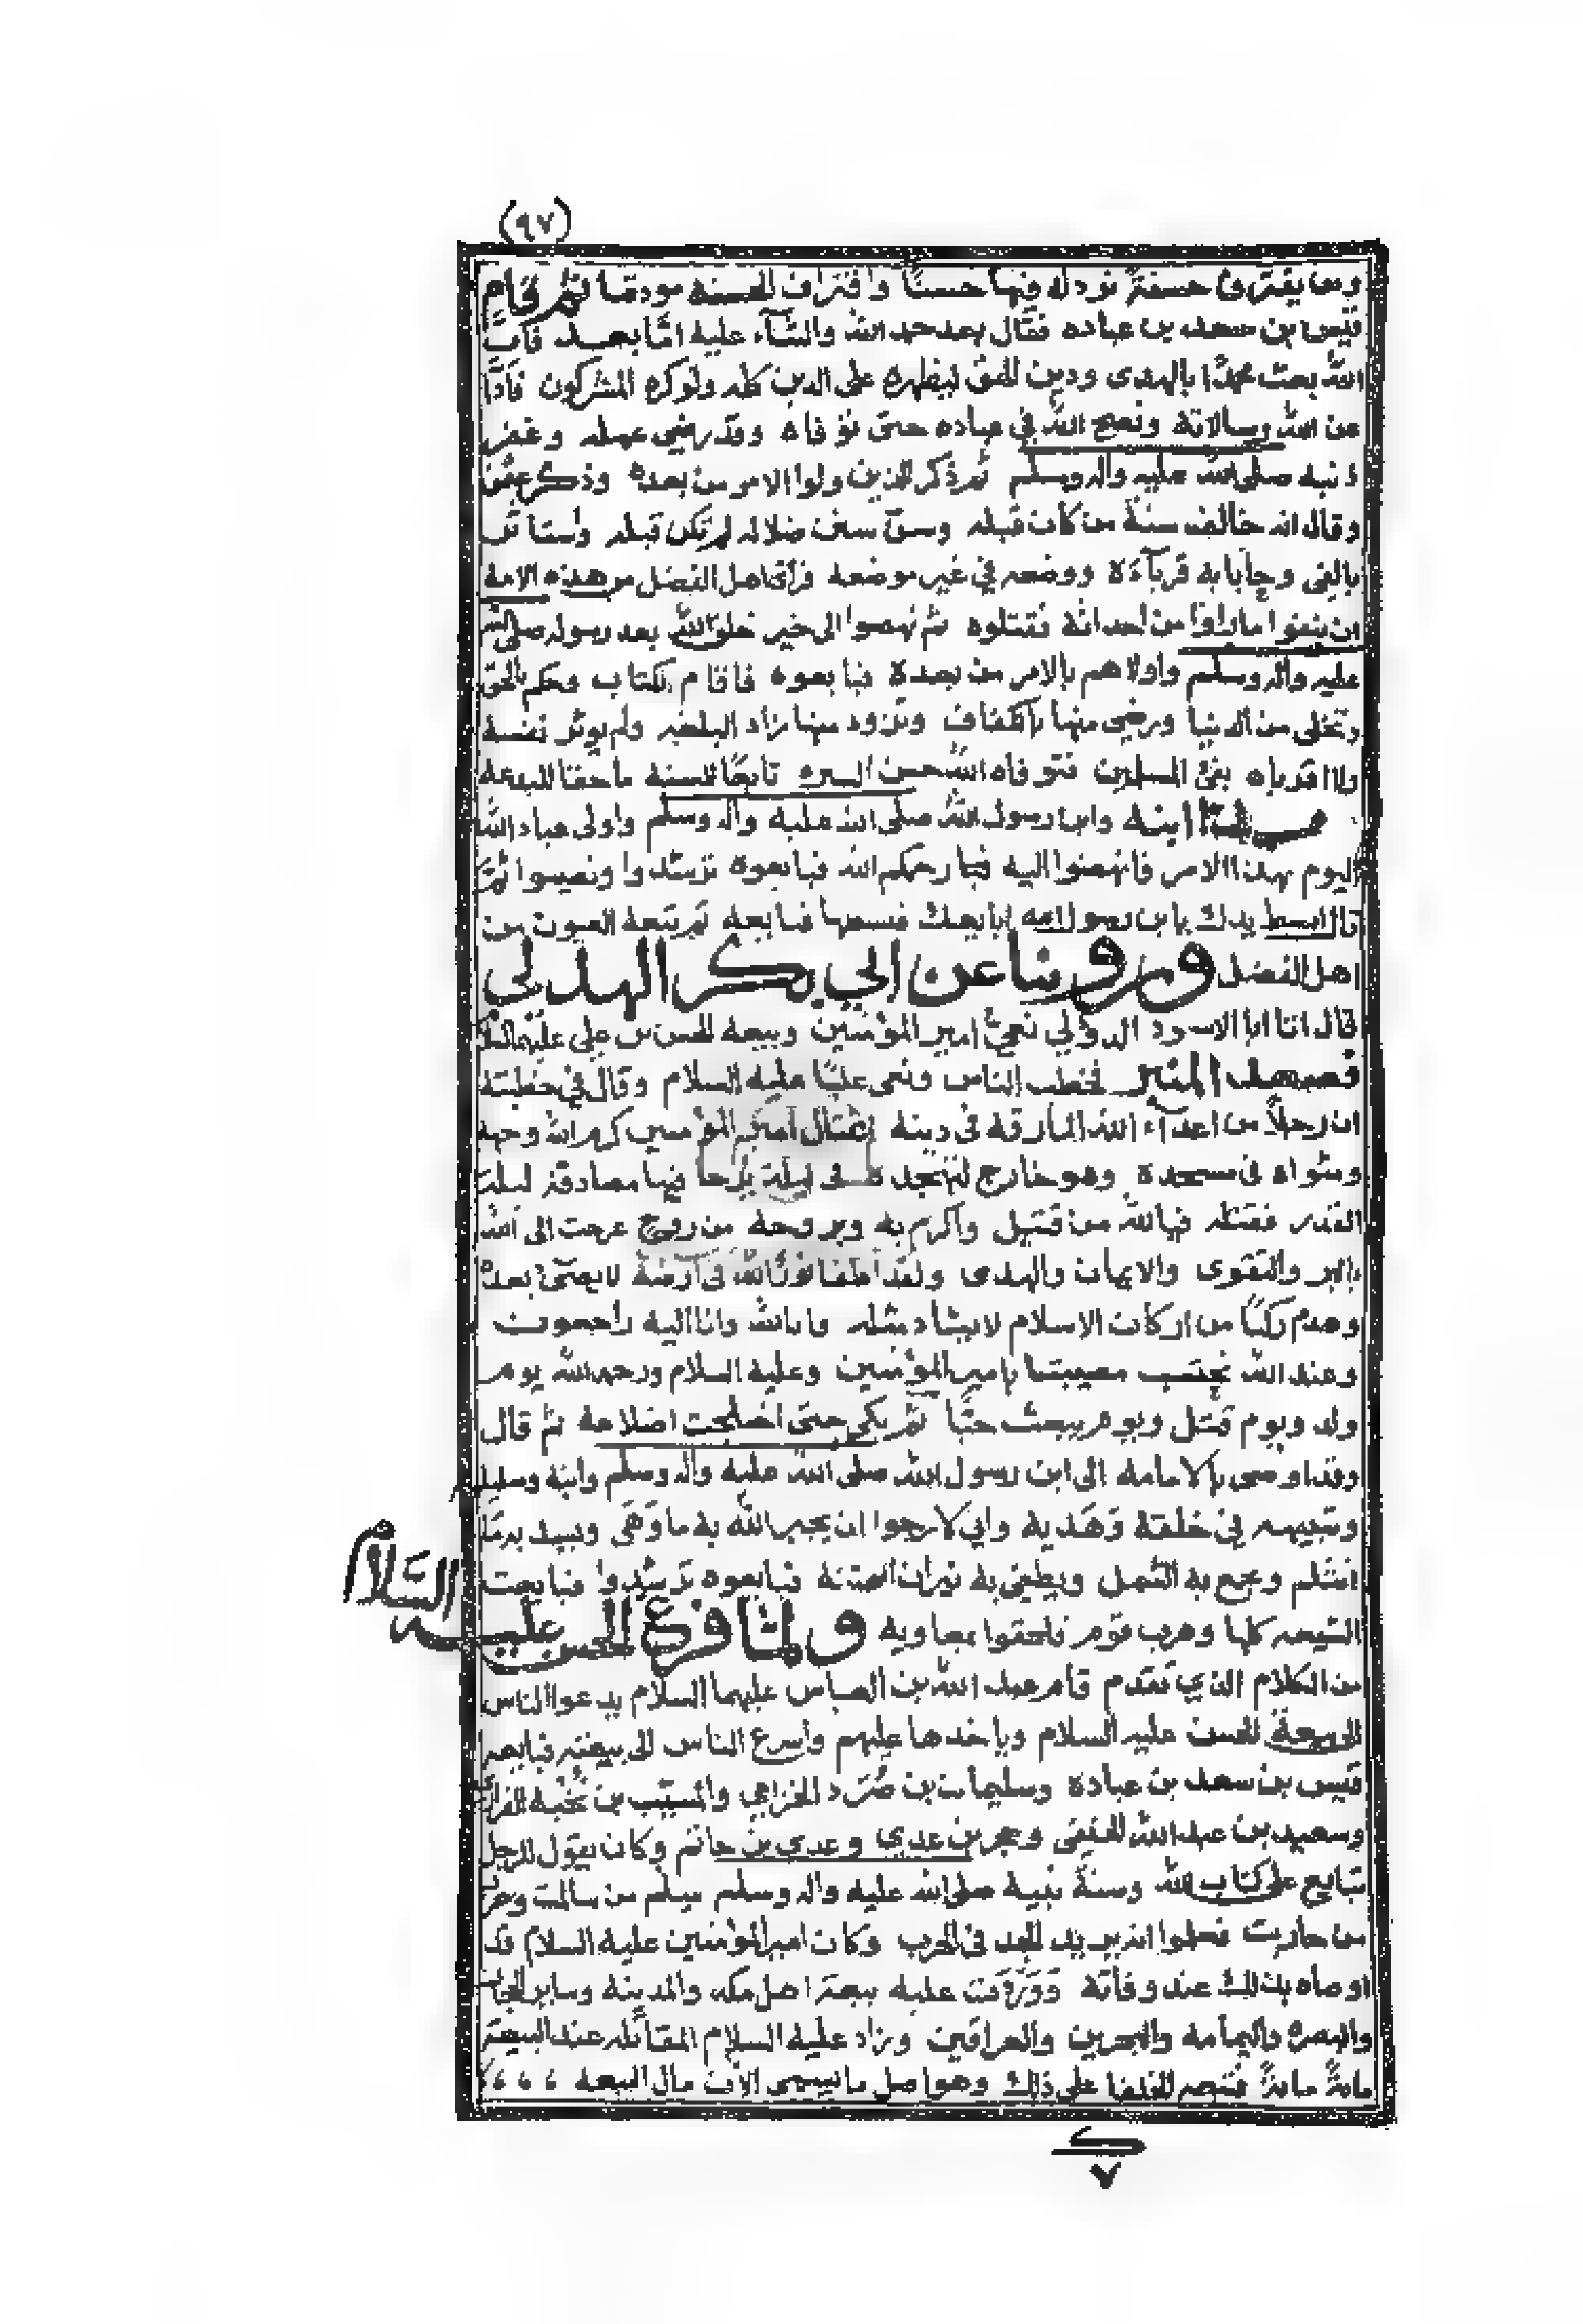 (٩٧)
ومن يقترف حسنة نزد له فيها حسنًا واقتراف الحسنه مودتنا ثم قام
قيس بن سعد بن عباده فقال بعد حمد الله والثنآء عليه امّا بعد فان
الله بعث محمدًا بالهدى ودين الحق ليظهره على الدين كله ولوكره المشركون فادّا
عن الله رسالاته ونصح الله في عباده حتى توفاه وقد رضي عمله وغفر
ذنبه صلى الله عليه واله وسلم ثم ذكر الذين ولوا الامر من بعده وذكر عثمن
وقال انه خالف سنة من كان قبله وسن سنن ضلاله لم تكن قبله واستاثر
بالفي وحابا به قربآءه ووضعه في غير موضعه فرأى اهل الفضل من هذه الامة
ان ينفوا ماراوا من احداثه فقتلوه ثم نهضوا الى خير خلق الله بعد رسوله صلى الله
عليه واله وسلم واولاهم بالامر من بعده فبايعوه فاقام الكتاب وحكم بالحق
وتخلى من الدنيا ورضي منها بالكفاف وتزود منها زاد البلغه ولم يوثر نفسه
ولا اقرباه بفئ المسلمين فتوفاه الله حسن السيره تابعًا للسنة ماحقا للبدعة
وهذا ابنه وابن رسول الله صلى الله عليه واله وسلم واولى عباد الله
اليوم بهذا الامر فانهضوا اليه فبا رحمكم الله فبايعوه ترشدوا وتصيبوا ثم
قال ابسط يدك يابن رسول الله ابايعك فبسطها فبايعه ثم تبعه العيون من
اهل الفضل وروينا عن ابي بكر الهذلي
قال اتا ابا الاسود الدؤلي نعيُّ امير المؤمنين وبيعة الحسن بن علي عليهما السلام
فصعد المنبر فخطب الناس ونعى عليًا عليه السلام وقال في خطبته
ان رجلاً من اعدآء الله المارقة في دينه اغتال امير المؤمنين كرم الله وجهه
ومثواه في مسجده وهو خارج لتهجده في ليلة يرجا فيها مصادفة ليلة
القدر فقتله فيالله من قتيل واكرم به وبروحه من روح عرجت الى الله
بالبر والتقوى والايمان والهدى ولقد اطفا نورُ الله في ارضه لا يضيُ بعده
وهدم ركنًا من اركان الاسلام لا يشاد مثله وانا لله وانا اليه راجعون
وعند الله نحتسب مصيبتنا بامير المؤمنين وعليه السلام ورحمة الله يوم
ولد ويوم قتل ويوم يبعث حيًا ثم بكى حتى اختلجت اضلاعه ثم قال
وقد اوصى بالامامة الى ابن رسول الله صلى الله عليه واله وسلم وابنه وسليله
وشبيهه في خلقه وهديه واني لارجوا ان يجبر الله به ما وهى ويسد به ما
انثلم ويجمع به الشمل ويطفي به نيران الفتنة فبايعوه ترشدوا فبايعت
الشيعه كلها وهرب قوم فلحقوا بمعاوية ولمّا فرغ الحسن عليه السّلام
من الكلام الذي تقدم قام عبد الله بن العباس عليهما السلام يدعوا الناس
الى بيعة الحسن عليه السلام وياخدها عليهم واسرع الناس الى بيعته فبايعه
قيس بن سعد بن عبادة وسليمان بن صُرَد الخزاعي والمسيّب بن نجبه الفزاري
وسعيد بن عبد الله الحنفي وحجر بن عدي وعدي بن حاتم وكان يقول للرجل
تبايع على كتاب الله وسنة نبيه صلى الله عليه واله وسلم تسلم من سالمت وتحرب
من حاربت فعلموا انه يريد الجد في الحرب وكان امير المؤمنين عليه السلام قد
اوصاه بذلك عند وفاته ووردت عليه بيعة اهل مكه والمدينة وساير الحجاز
والبصره واليمامة والبحرين والعراقين وزاد عليه السلام المقاتله عند البيعة
مايةً مايةً فتبعه الخلفا على ذلك وهو اصل مايسمى الان مال البيعه